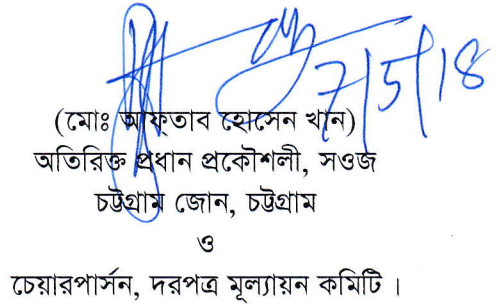 7/5/18
(মোঃ আফতাব হোসেন খান)
অতিরিক্ত প্রধান প্রকৌশলী, সওজ
চট্টগ্রাম জোন, চট্টগ্রাম
ও
চেয়ারপার্সন, দরপত্র মূল্যায়ন কমিটি ।